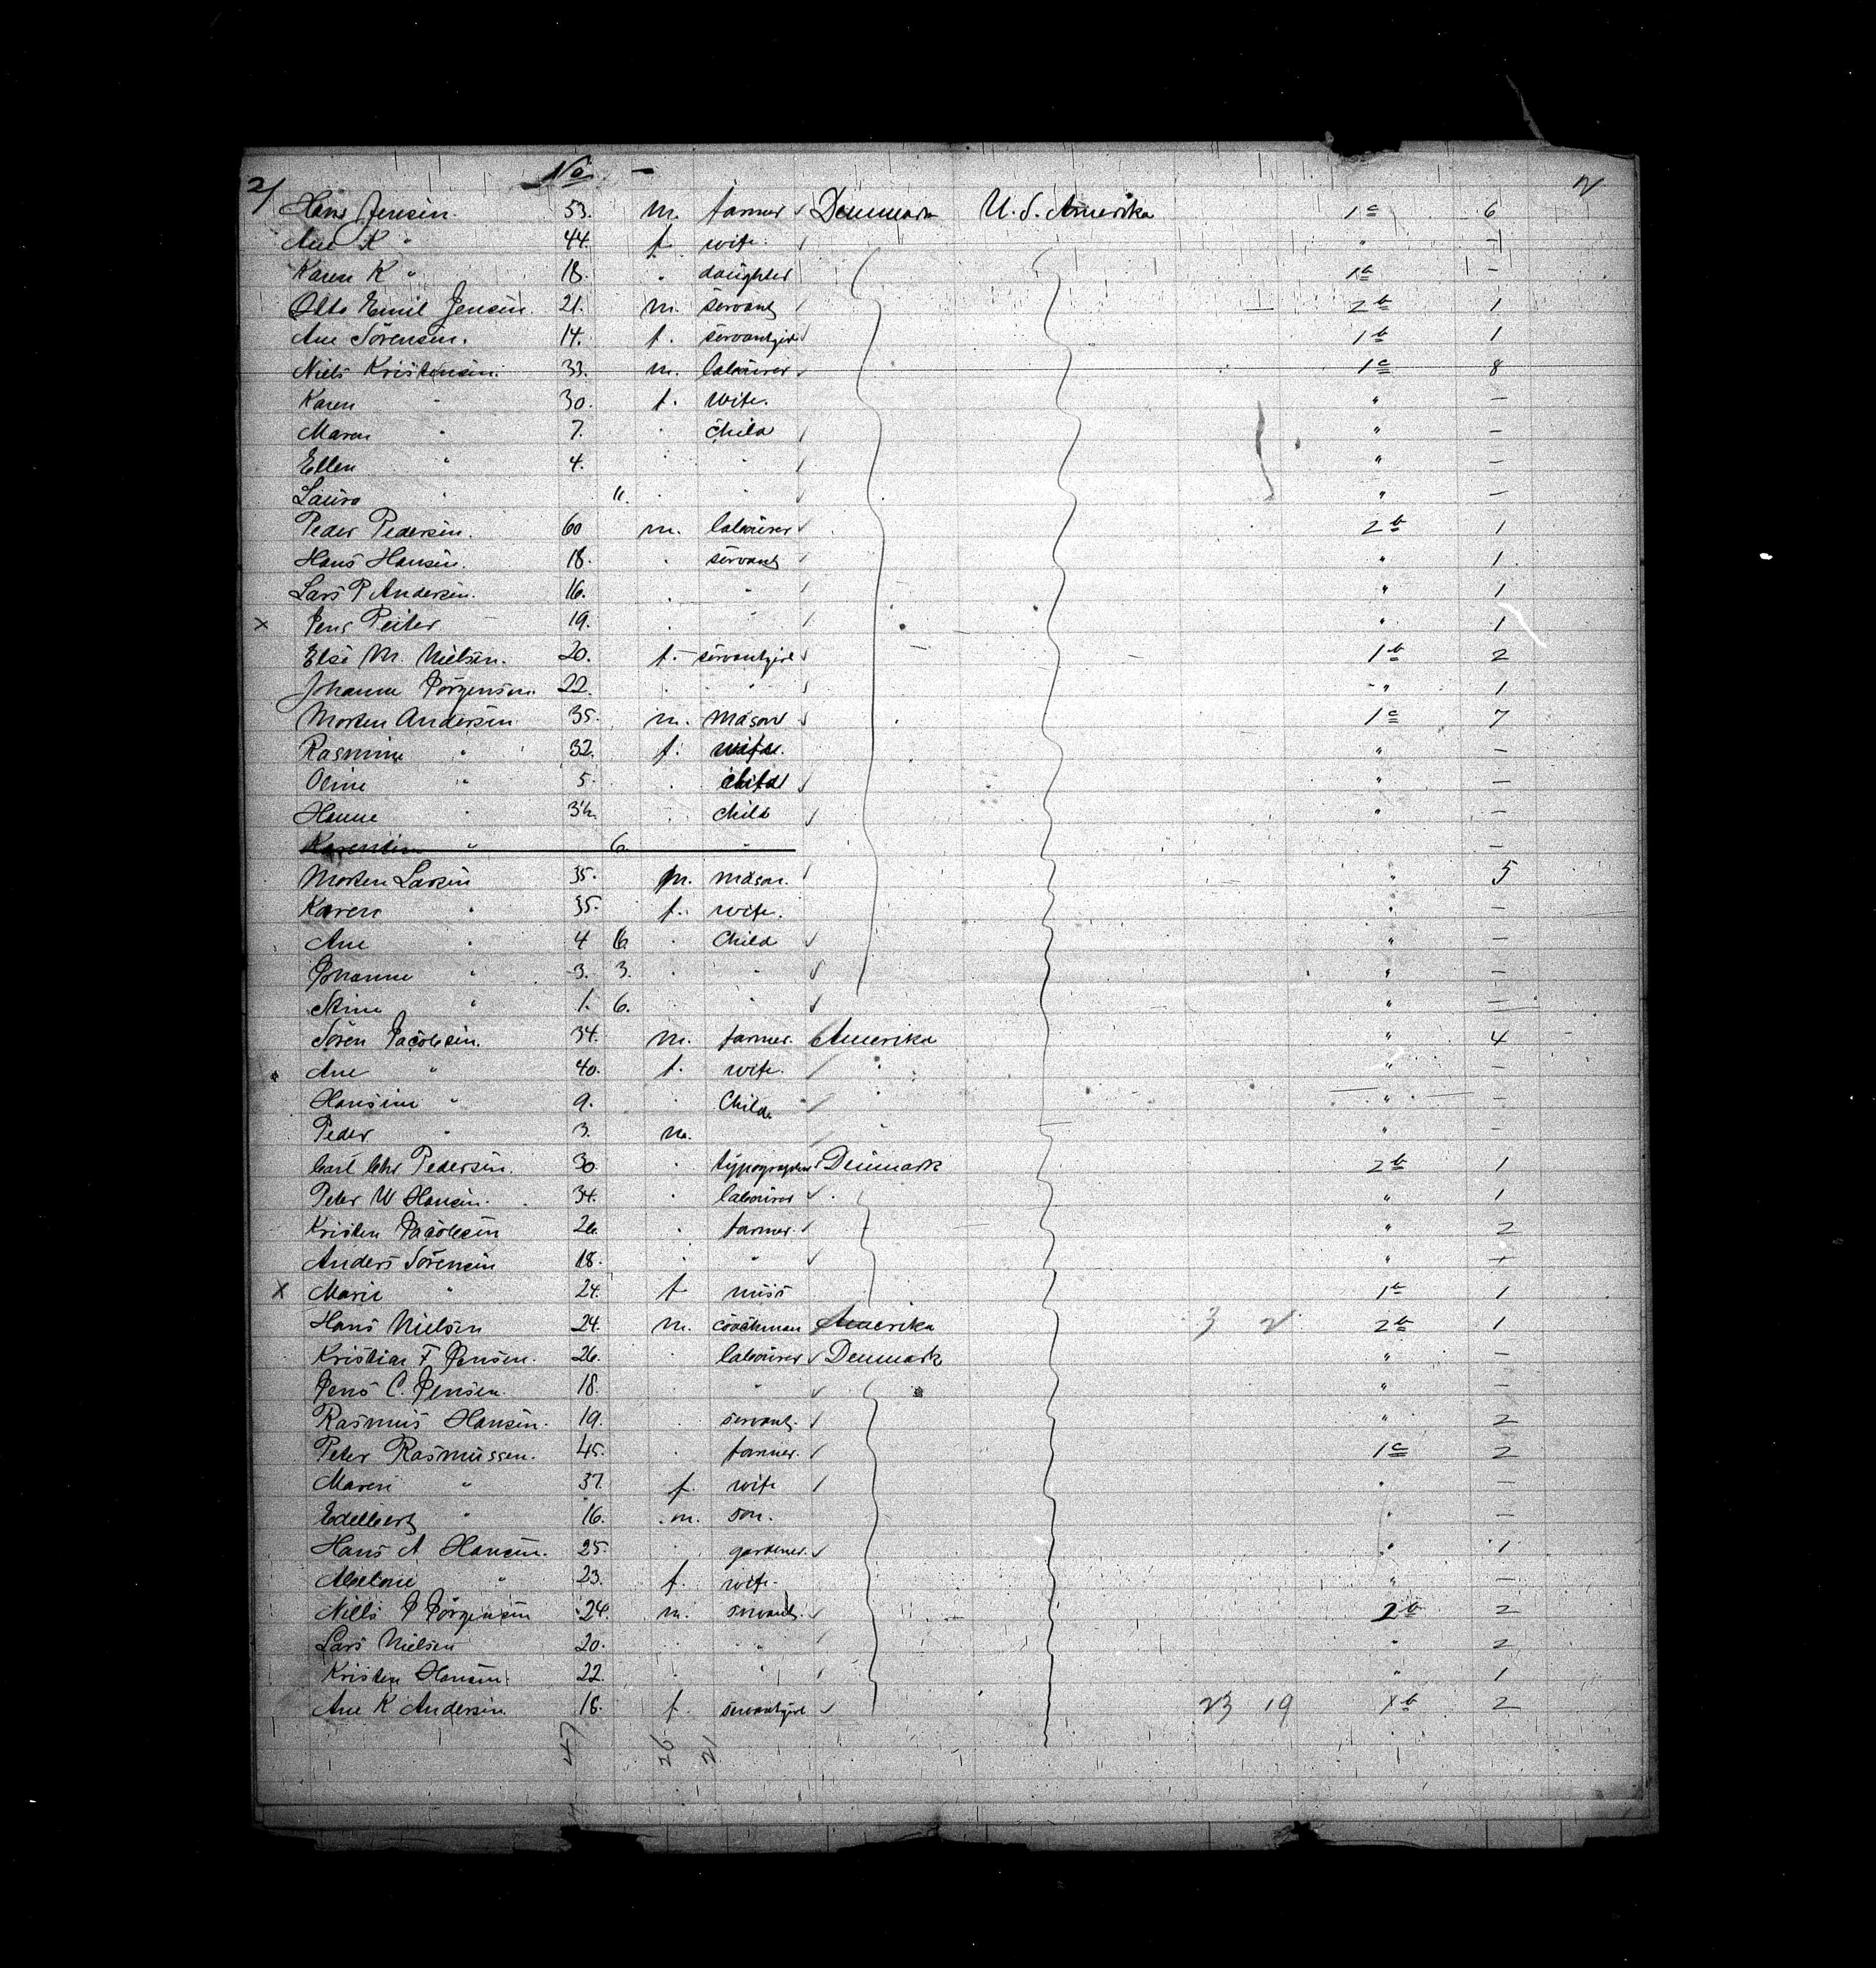 No. —
2/ 2
Hans Jensen. 53. m. farmer Denmark U. S. Amerika 1 c 6
Ane K " 44. f. wife. " —
Karen K " 18. " daughter 1 b —
Otto Emil Jensen. 21. m. servant 2 b 1
Ane Sörensen. 14. f. servantgirl 1 b 1
Niels Kristensen. 33. m. labourer 1 c 8
Karen " 30. f. wife. " —
Maren " 7. " child " —
Ellen " 4. " " " —
Laura " 11. " " " —
Peder Pedersen. 60 m. labourer 2 b 1
Hans Hansen. 18. " servant " 1
Lars P Andersen. 16. " " " 1
x Jens Peiter 19. " " " 1
Else M. Nielsen. 20. f. servantgirl 1 b 2
Johanne Jörgensen. 22. " " " 1
Morten Andersen 35. m. mason 1 c 7
Rasmine " 32. f. wife. " —
Oline " 5. " child " —
Hanne " 3½. " child " —
Karentine " 6. " —
Morten Larsen 35. m. mason. " 5
Karen " 35. f. wife. " —
Ane " 4 6 " child " —
Johanne " 3. 3. " " " —
Stine " 1. 6. " " " —
Sören Jacobsen. 34. m. farmer. Amerika " 4
Ane " 40. f. wife. " —
Hansine " 9. " Child. " —
Peder " 3. m. " —
Carl Chr Pedersen. 30. " typographer Denmark 2 b 1
Peter W Hansen. 34. " labourer " 1
Kristen Jacobsen 26. " farmer. " 2
Anders Sörensen 18. " " "
x Marie " 24. f. miss 1 b 1
Hans Nielsen 24. m. coachman Amerika 3 2 2 b 1
Kristian F Jensen. 26. " labourer Denmark " —
Jens C. Jensen. 18. " " " —
Rasmus Hansen. 19. " servant. " 2
Peter Rasmussen. 45. " farmer. 1 c 2
Maren " 37. f. wife " —
Edelbert " 16. m. son. " —
Hans A Hansen. 25. " gardener. " 1
" 23. f. wife. " —
Niels P Jörgensen 24. m. servant. 2 b 2
Lars Nielsen 20. " " " 2
Kristen Hansen. 22. " " " 1
Ane K Andersen. 18. f. servantgirl 23 19 1 b 2
47 26 21